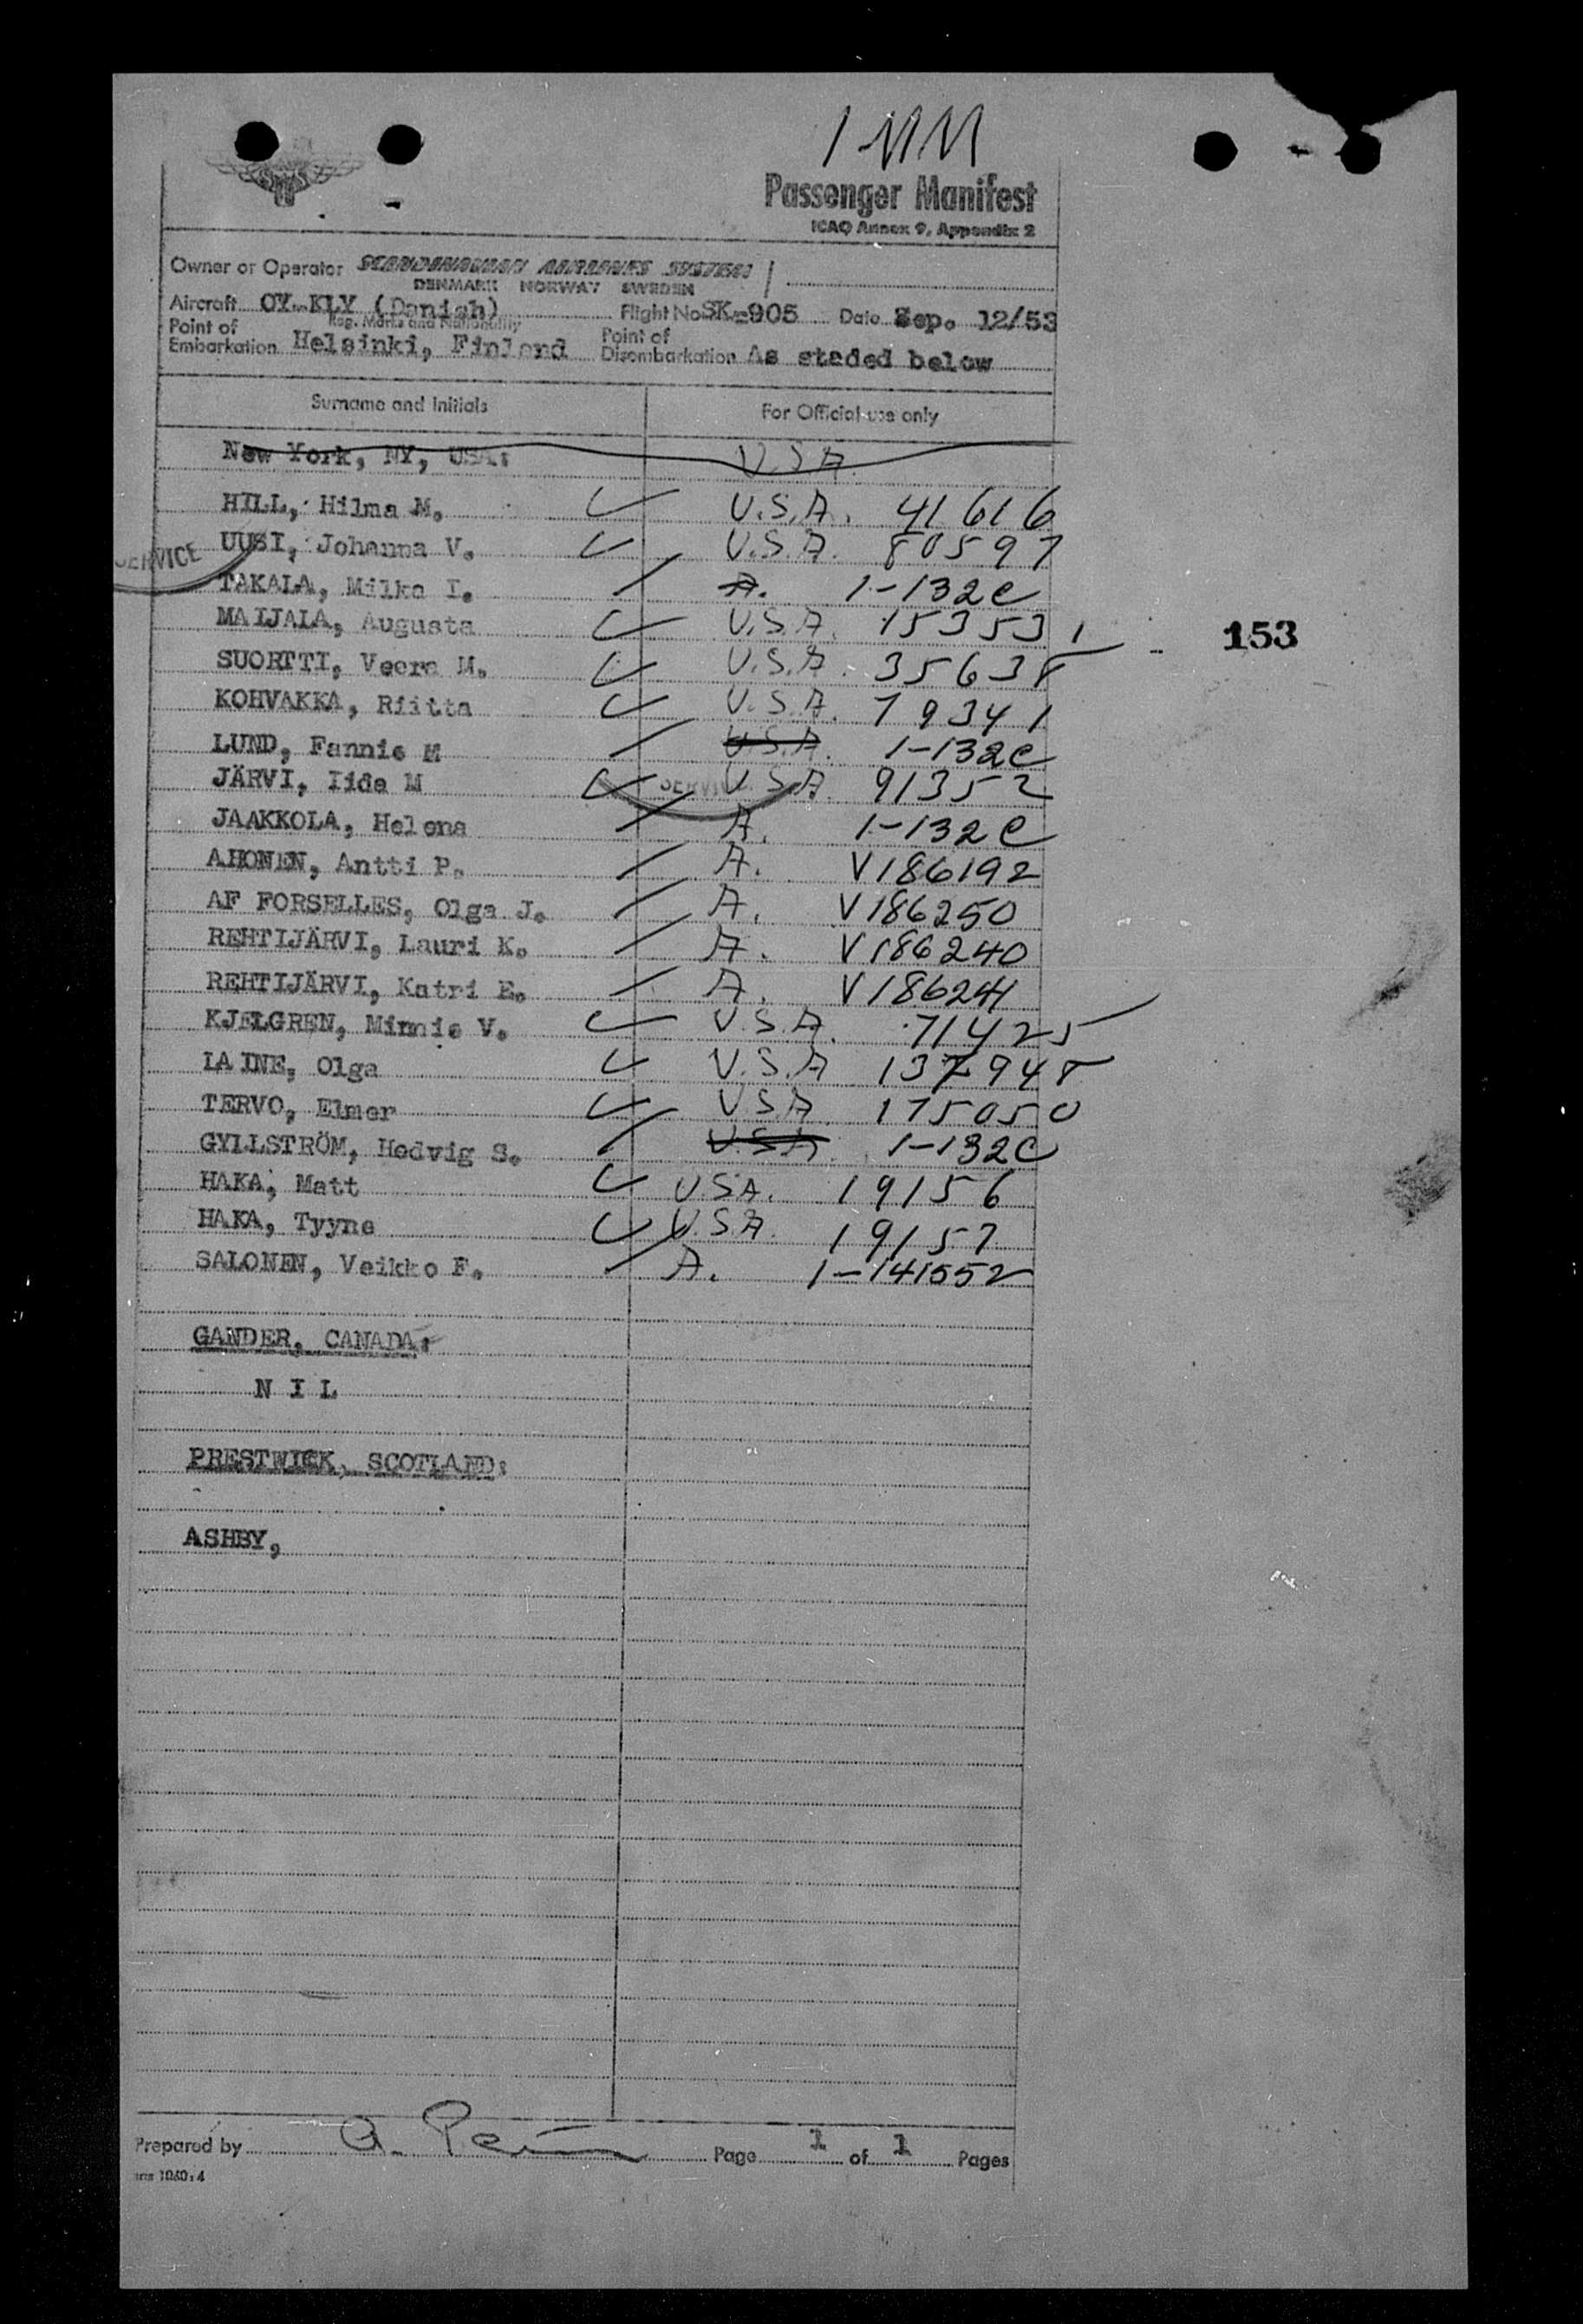 Passenger Manifest
ICAO Annex 9, Appendix 2
Owner or Operator SCANDINAVIAN AIRLINES SYSTEM
DENMARK NORWAY SWEDEN
Aircraft OY-KLY (Danish) Flight No SK-905 Date Sep. 12/53
Reg. Marks and Nationality
Point of Embarkation Helsinki, Finland Point of Disembarkation As staded below
Surname and Initials For Official use only
New York, NY, USA: U.S.A.
HILL, Hilma M. U.S.A. 41616
UUSI, Johanna V. U.S.A. 80597
SERVICE
TAKALA, Milka I. A. 1-132c
MAIJALA, Augusta U.S.A. 153531
153
SUORTTI, Veera M. U.S.A. 35638
KOHVAKKA, Riitta U.S.A. 79341
LUND, Fannie M U.S.A. 1-132c
JÄRVI, Iida M U.S.A. 91352
SERVICE
JAAKKOLA, Helena A. 1-132c
AHONEN, Antti P. A. V186192
AF FORSELLES, Olga J. A. V186250
REHTIJÄRVI, Lauri K. A. V186240
REHTIJÄRVI, Katri E. A. V186241
KJELGREN, Minnie V. U.S.A. 71425
LAINE, Olga U.S.A 137948
TERVO, Elmer U.S.A 175050
GYLLSTRÖM, Hedvig S. U.S.A 1-132c
HAKA, Matt U.S.A. 19156
HAKA, Tyyne U.S.A. 19157
SALONEN, Veikko F. A. 1-141552
GANDER, CANADA:
N I L
PRESTWICK, SCOTLAND:
ASHBY,
Prepared by A. Page 1 of 1 Pages